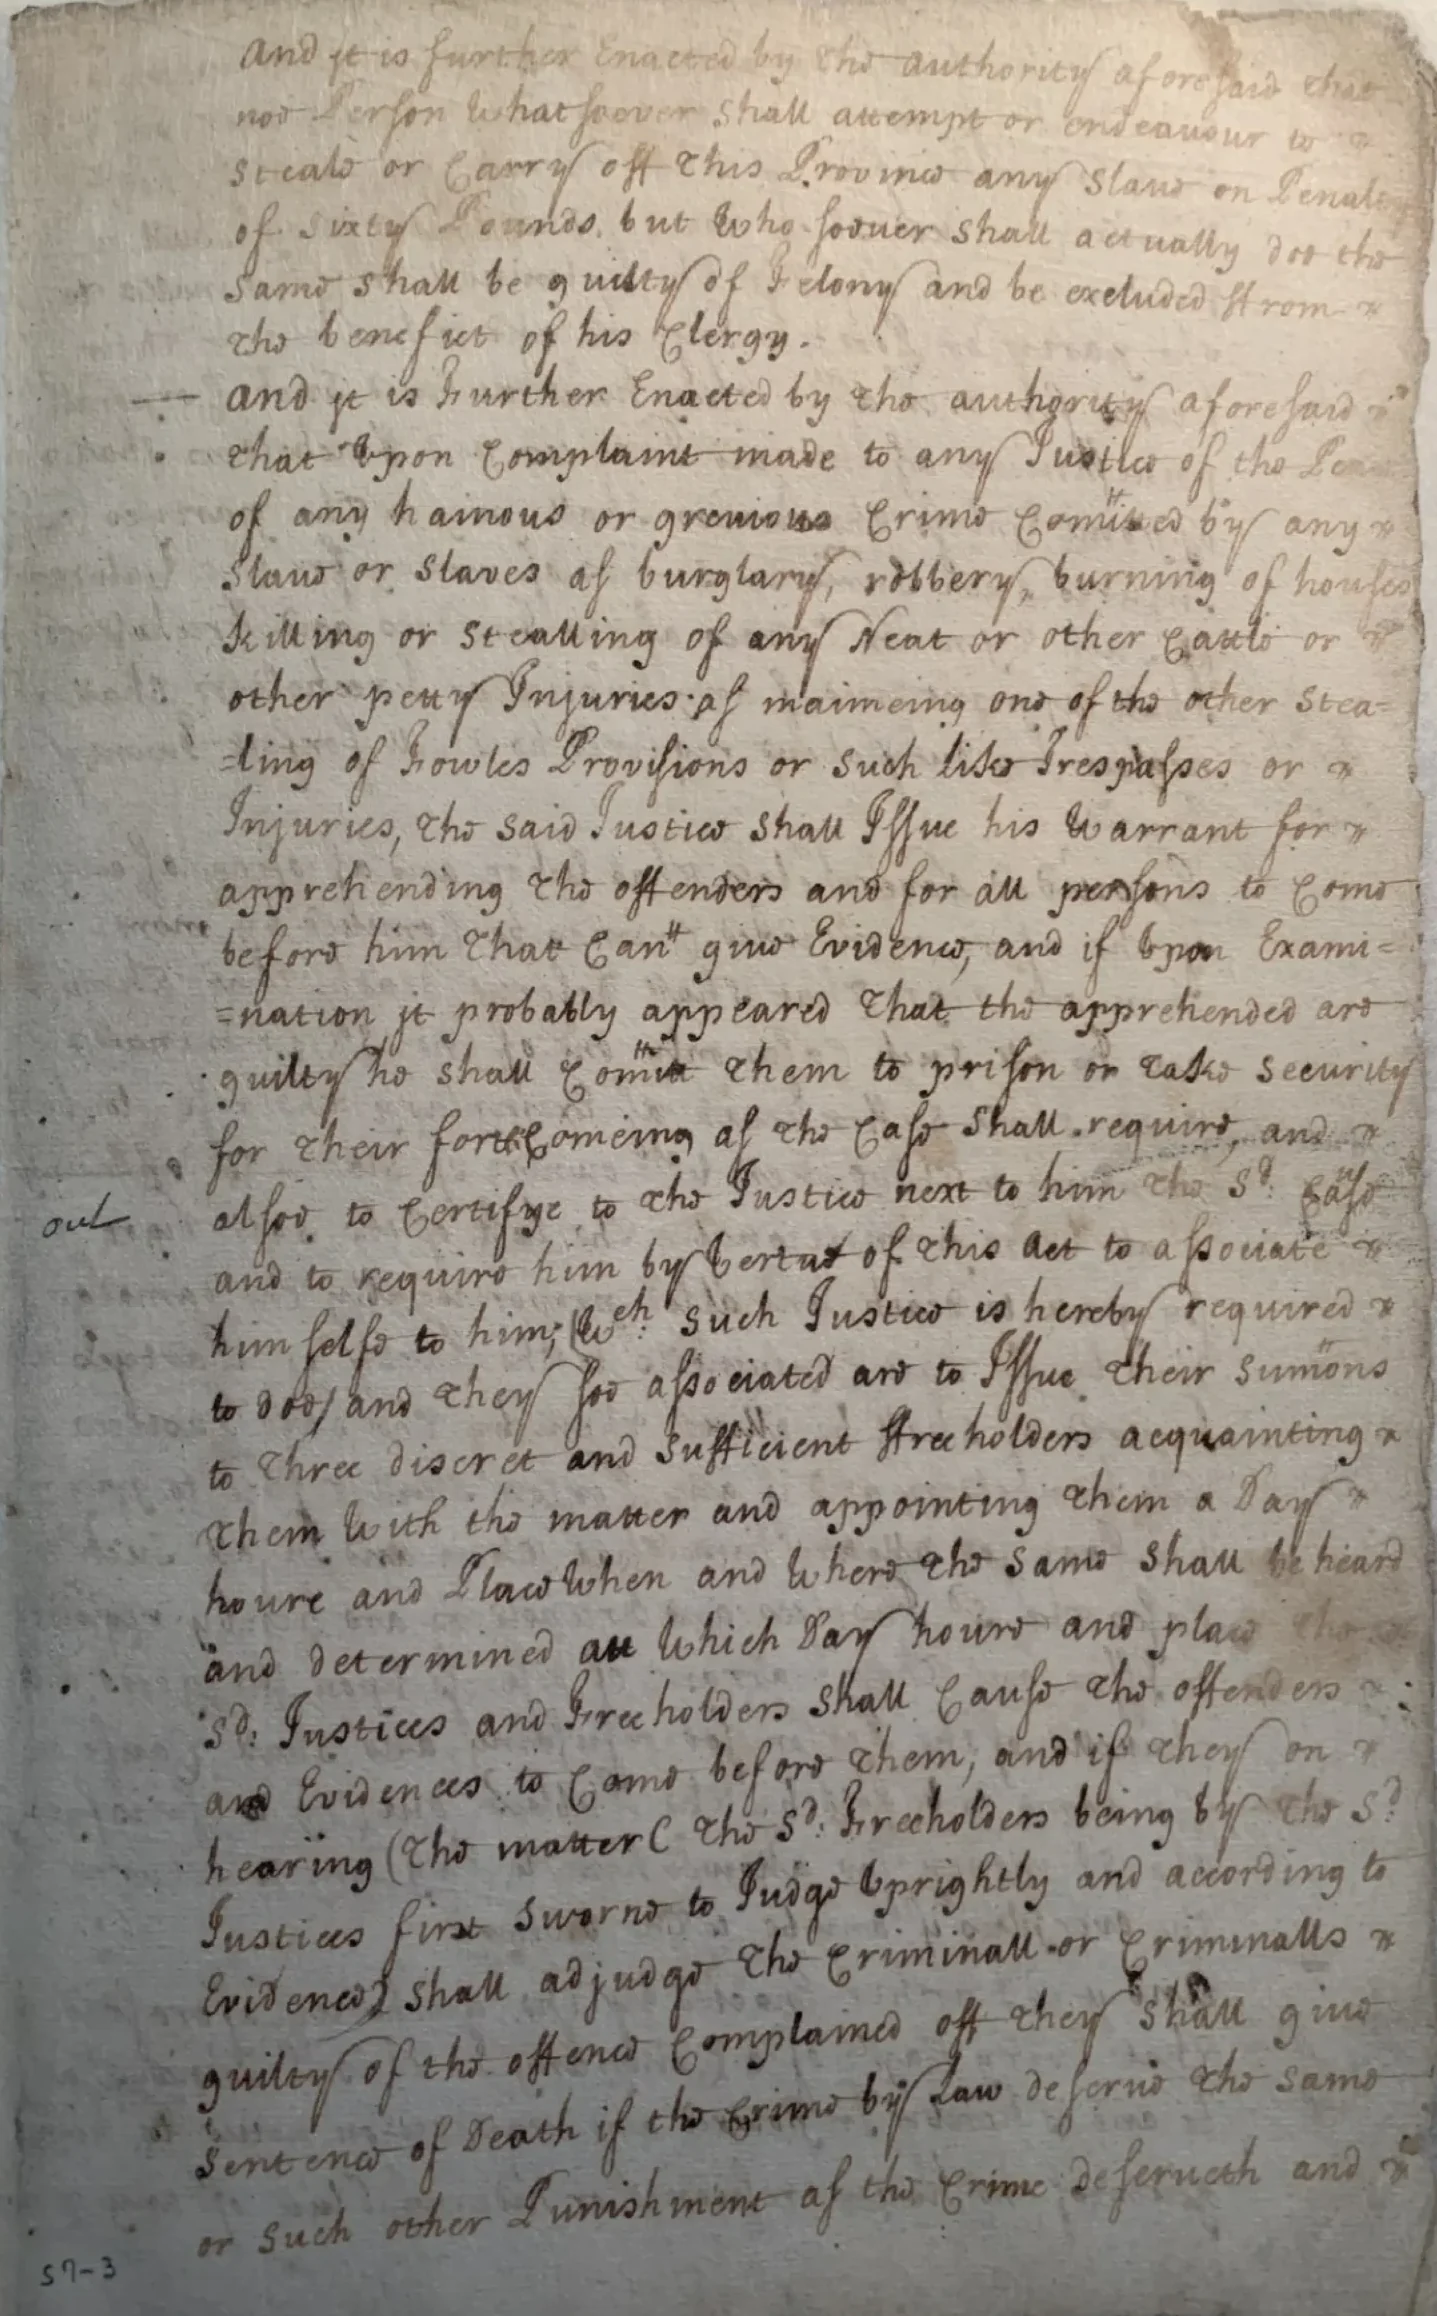 and it is further Enacted by the authority aforesaid that
noe Person Whatsoever shall attempt or endeavour to
steale or Carry off this Province any slave on Penalty
of sixty Pounds. but Who soever shall actually doe the
same shall be guilty of Felony and be excluded ffrom
the benefict of his Clergy.
and it is Further Enacted by the authority aforesaid
that Vpon Complaint made to any Justice of the Peace
of any hainous or grevious Crime Comitted by any
slave or slaves as burglary, robbery, burning of houses
killing or stealling of any Neat or other Cattle or
other petty Injuries as maimeing one of the other stea=
=ling of Fowles Provisions or such like Trespasses or
Injuries, the said Justice shall Issue his Warrant for
apprehending the offenders and for all persons to Come
before him that Cann give Evidence, and if Vpon Exami=
=nation it probably appeared that the apprehended are
guilty he shall Comitt them to prison or take security
for their forthComeing as the Case shall require, and
out
alsoe to Certifye to the Justice next to him the Sd: Case
and to require him by Vertue of this act to associate
himselfe to him; (Wch: such Justice is hereby required
to doe/ and they soe associated are to Issue their sumons
to three discret and sufficient ffreeholders acquainting
them With the matter and appointing them a Day
houre and Place When and Where the same shall be heard
and determined att Which Day houre and place the
sd: Justices and Freeholders shall Cause the offenders
and Evidences to Come before them, and if they on
hearing (the matter ( the sd: Freeholders being by the sd:
Justices first sworne to Judge Vprightly and according to
Evidence) shall adjudge the Criminall or Criminalls
guilty of the offence Complained off they shall give
sentence of Death if the Crime by Law deserve the same
or such other Punishment as the Crime deserveth and
57-3